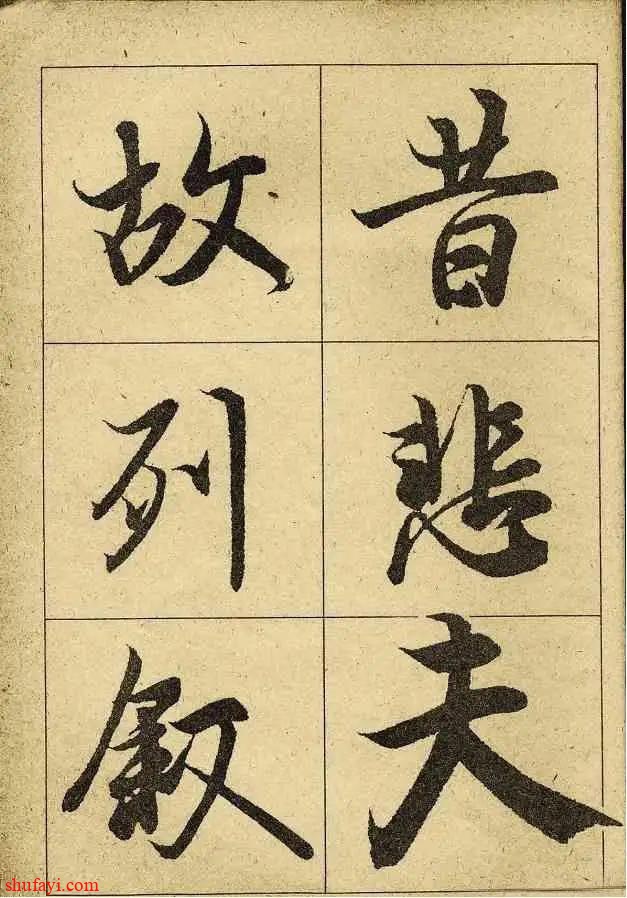 昔悲夫
故列叙
shufayi.com